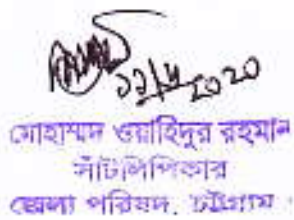 ১২/৮/২০২০
মোহাম্মদ ওয়াহিদুর রহমান
সাঁটলিপিকার
জেলা পরিষদ, চট্টগ্রাম